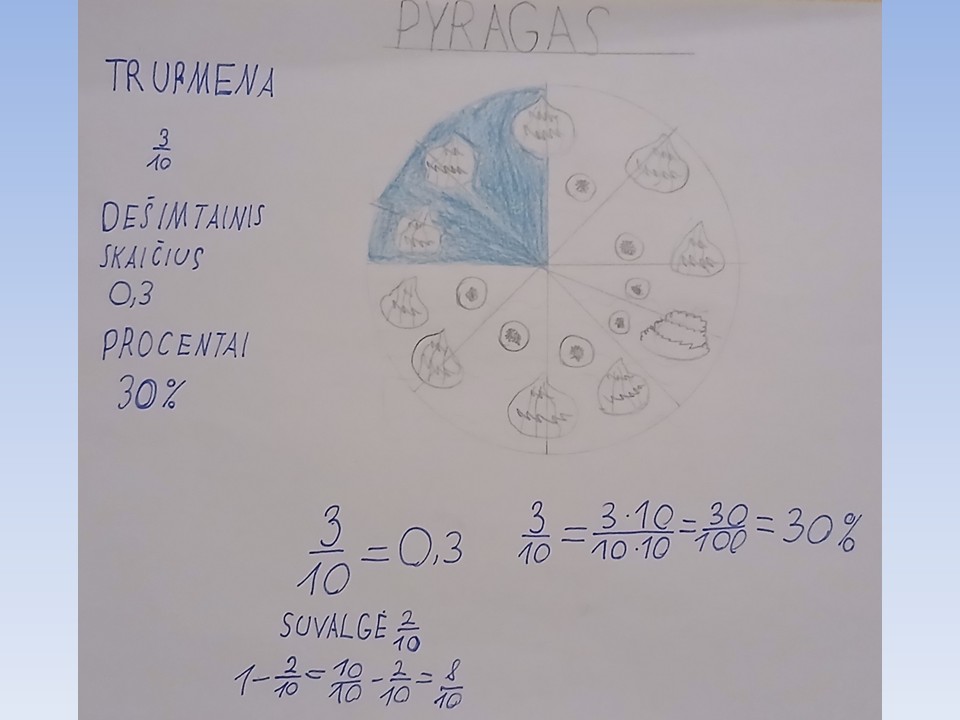 PYRAGAS
TRUPMENA
3/10
DEŠIMTAINIS
SKAIČIUS
0,3
PROCENTAI
30%
3/10 = 0,3
3/10 = 3·10/10·10 = 30/100 = 30%
SUVALGĖ 2/10
1 - 2/10 = 10/10 - 2/10 = 8/10